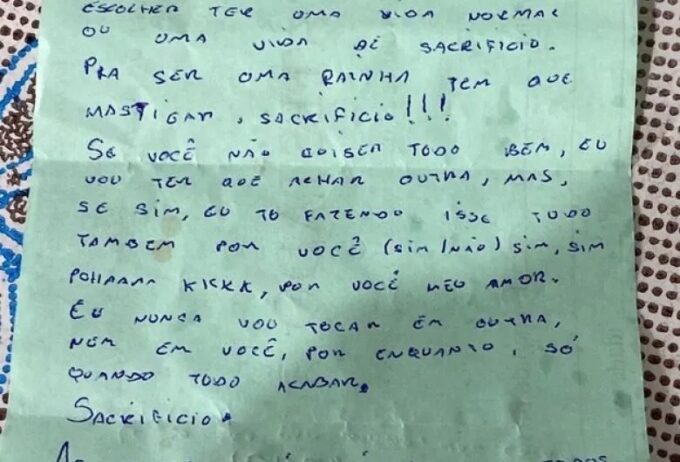 ESCOLHER TER UMA VIDA NORMAL
OU UMA VIDA DE SACRIFICIO.
PRA SER UMA RAINHA TEM QUE
MASTIGAR, SACRIFICIO!!!
SE VOCÊ NÃO QUISER TODO BEM, EU
VOU TER QUE ACHAR OUTRA, MAS,
SE SIM, EU TO FAZENDO ISSE TUDO
TAMBEM POR VOCÊ (SIM/NÃO) SIM, SIM
POHAAAA KKKK, POR VOCÊ MEU AMOR.
EU NUNCA VOU TOCAR EM OUTRA,
NEM EM VOCÊ, POR ENQUANTO, SÓ
QUANDO TUDO ACABAR.
SACRIFICIO.